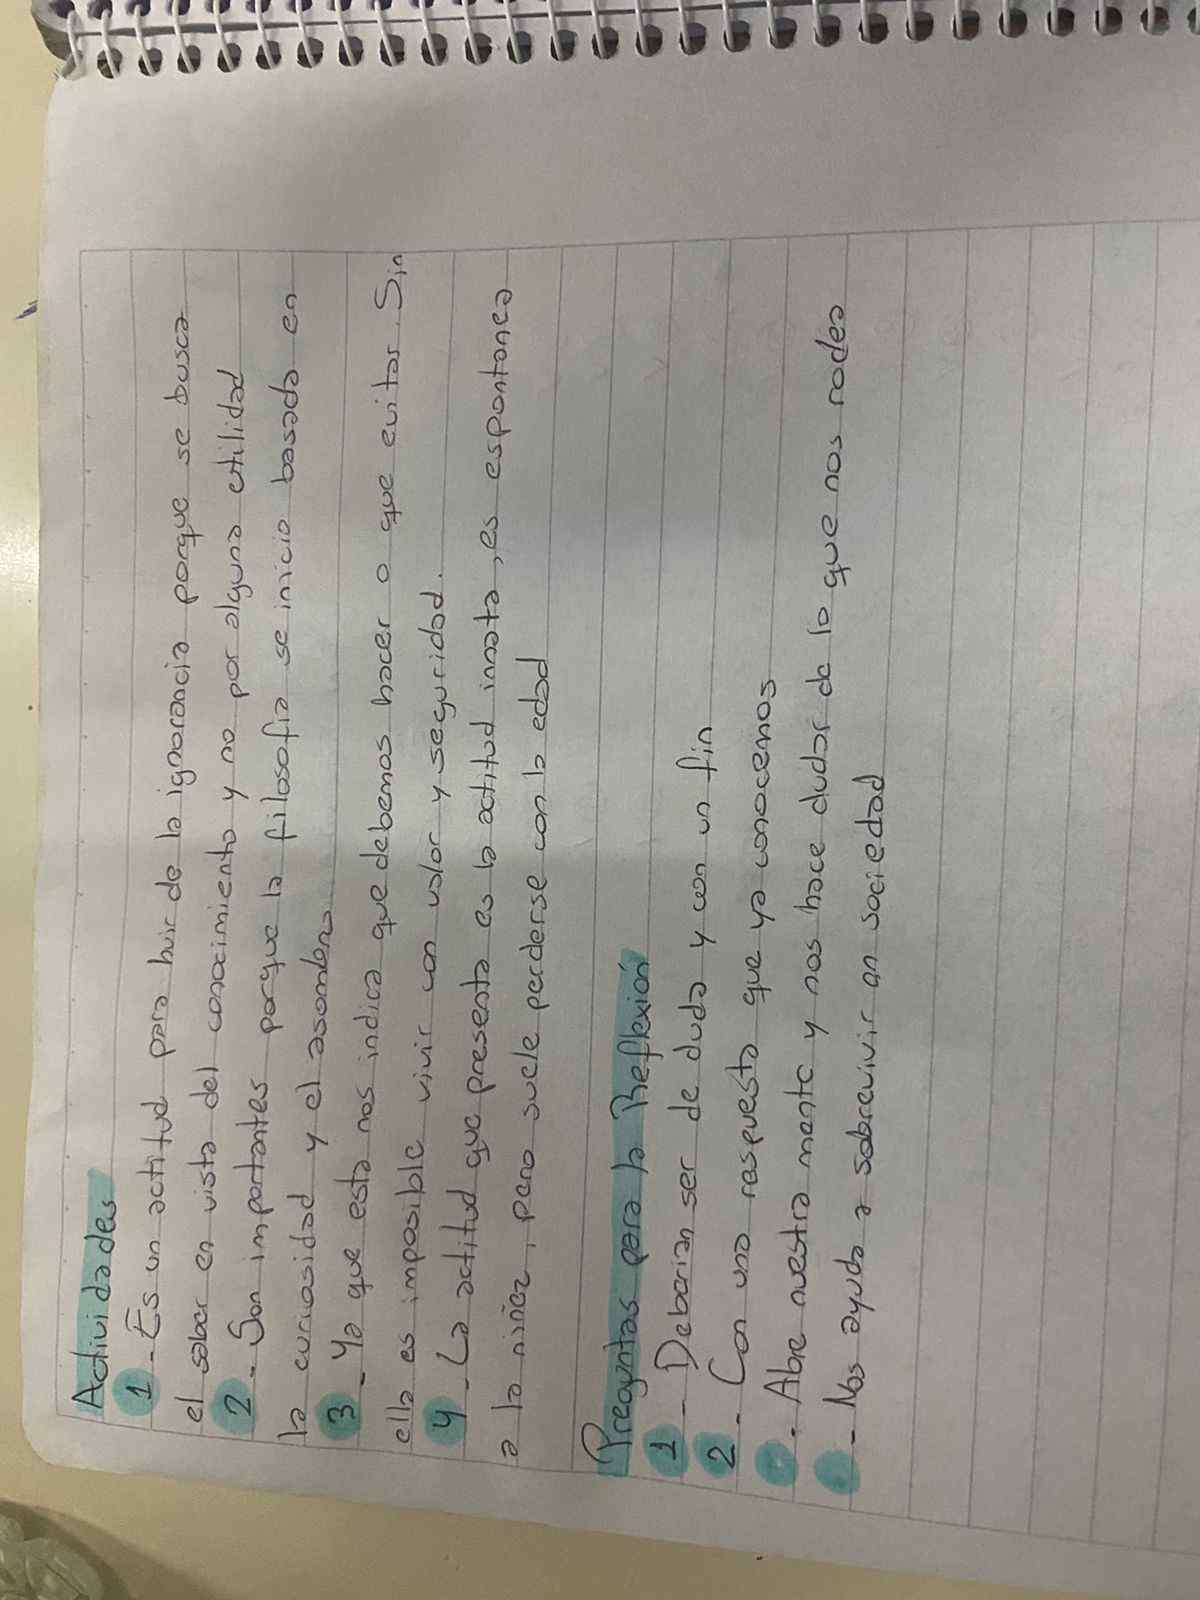 Actividades
1 - Es un actitud para huir de la ignorancia porque se busca
el saber en vista del conocimiento y no por alguna utilidad
2 - Son importantes porque la filosofia se inicio basada en
la curiosidad y el asombro
3 - Ya que esta nos indica que debemos hacer o que evitar. Sin
ella es imposible vivir con valor y seguridad.
4 - La actitud que presenta es la actitud innata, es espontanea
a la niñez, pero suele perderse con la edad
Preguntas para la Reflexión
1 - Deberian ser de duda y con un fin
2 - Con una respuesta que ya conocemos
- Abre nuestra mente y nos hace dudar de lo que nos rodea
- Nos ayuda a sobrevivir an sociedad